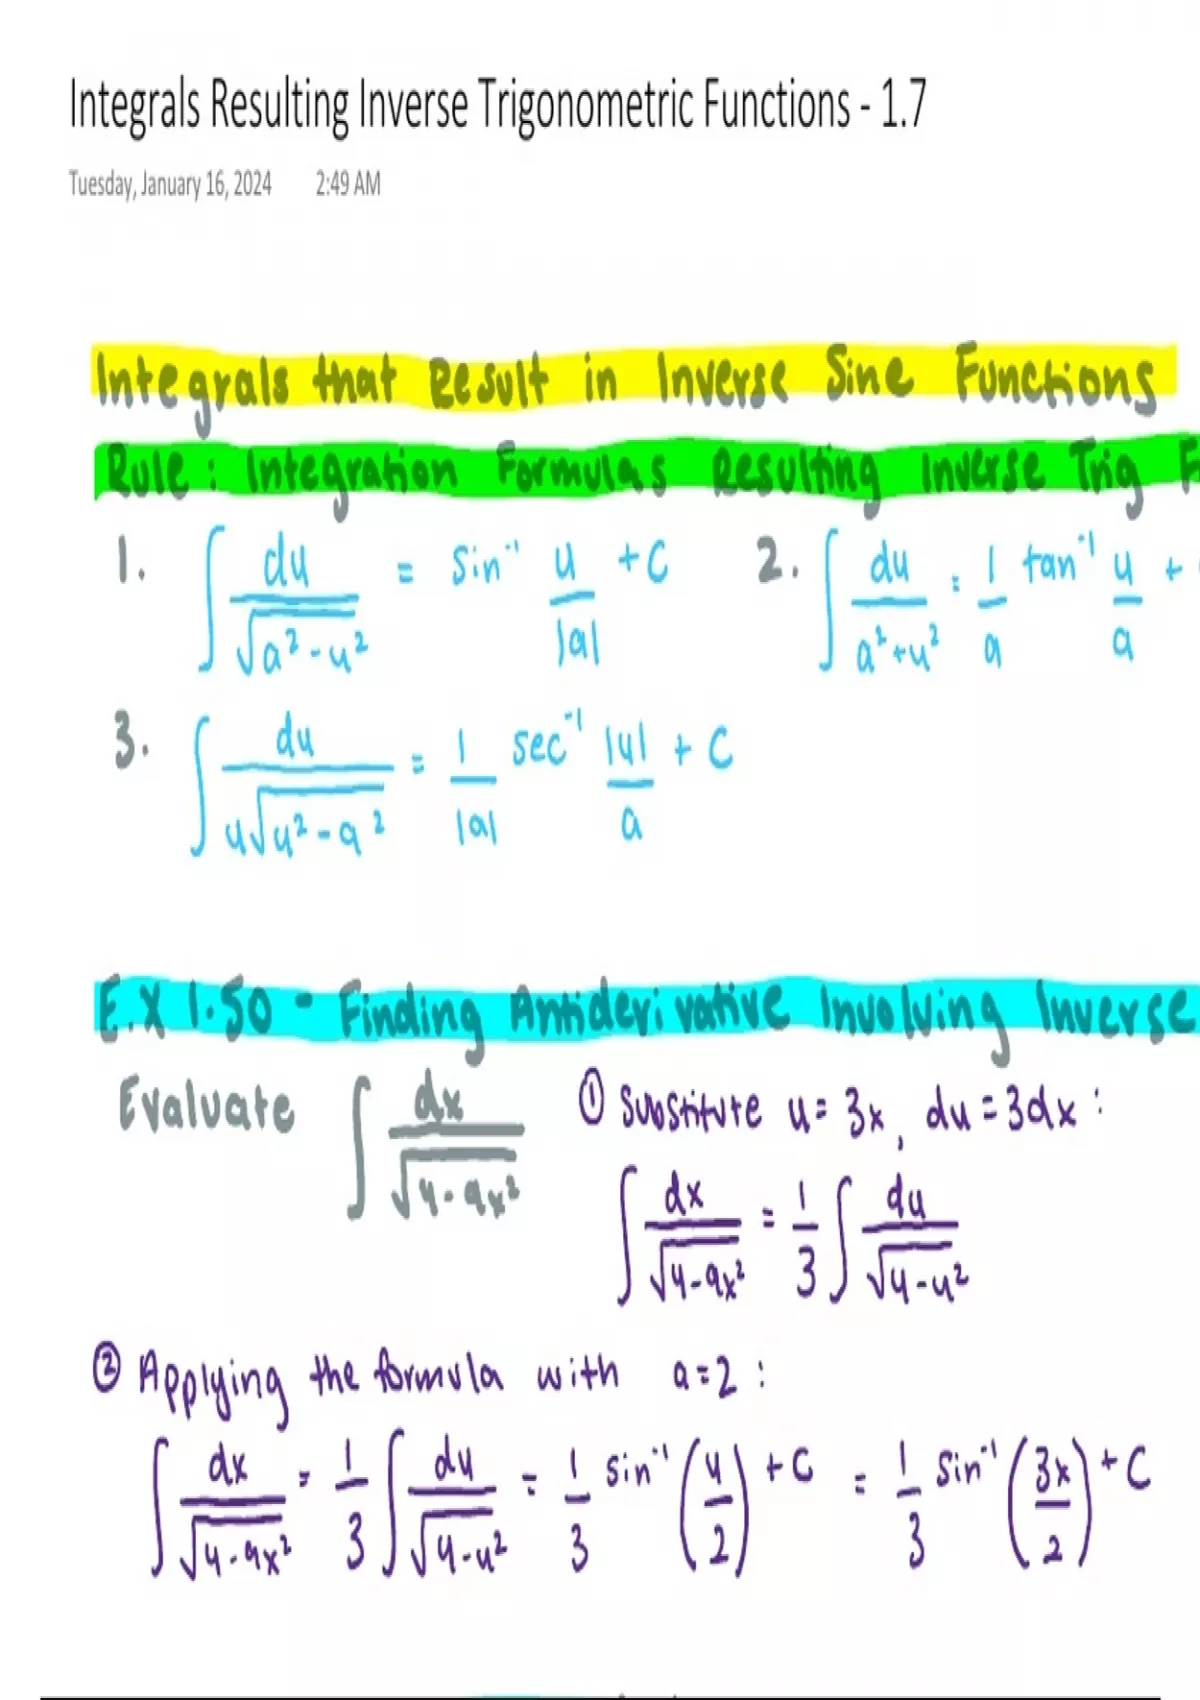 Integrals Resulting Inverse Trigonometric Functions - 1.7
Tuesday, January 16, 2024 2:49 AM
Integrals that Result in Inverse Sine Functions
Rule : Integration Formulas Resulting Inverse Trig F
1. ∫ du/√(a² - u²) = sin⁻¹ u/|a| + C 2. ∫ du/(a² + u²) = 1/a tan⁻¹ u/a +
3. ∫ du/(u√(u² - a²)) = 1/|a| sec⁻¹ |u|/a + C
E.X 1.50 - Finding Antiderivative Involving Inverse
Evaluate ∫ dx/√(4 - 9x²) ① Substitute u = 3x, du = 3dx :
∫ dx/√(4 - 9x²) = 1/3 ∫ du/√(4 - u²)
② Applying the formula with a = 2 :
∫ dx/√(4 - 9x²) = 1/3 ∫ du/√(4 - u²) = 1/3 sin⁻¹ (u/2) + C = 1/3 sin⁻¹ (3x/2) + C